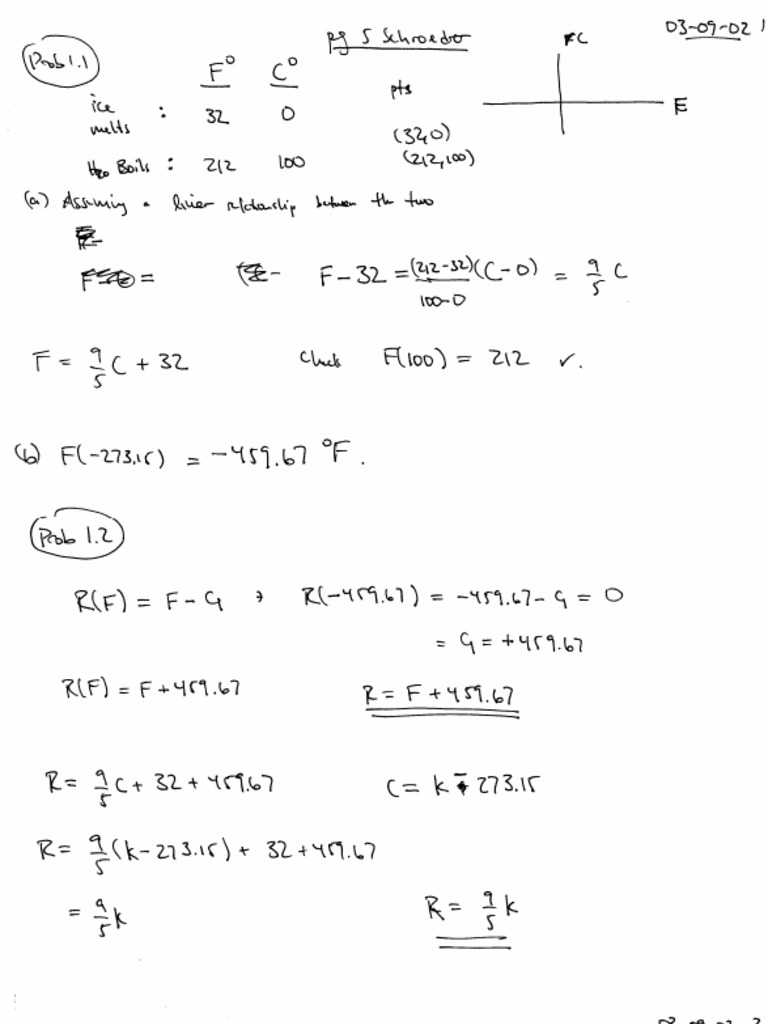 03-09-02 1
Prob 1.1
pg 5 Schroeder
F° C° pts
ice melts : 32 0 (32,0)
H2O Boils : 212 100 (212,100)
(a) Assuming a linear relationship between the two
F - 32 = (212-32)/(100-0) (C - 0) = 9/5 C
F = 9/5 C + 32 Check F(100) = 212 ✓.
(b) F(-273.15) = -459.67 °F.
Prob 1.2
R(F) = F - G , R(-459.67) = -459.67 - G = 0
= G = +459.67
R(F) = F + 459.67 R = F + 459.67
R = 9/5 C + 32 + 459.67 C = K - 273.15
R = 9/5 (K - 273.15) + 32 + 459.67
= 9/5 K R = 9/5 K